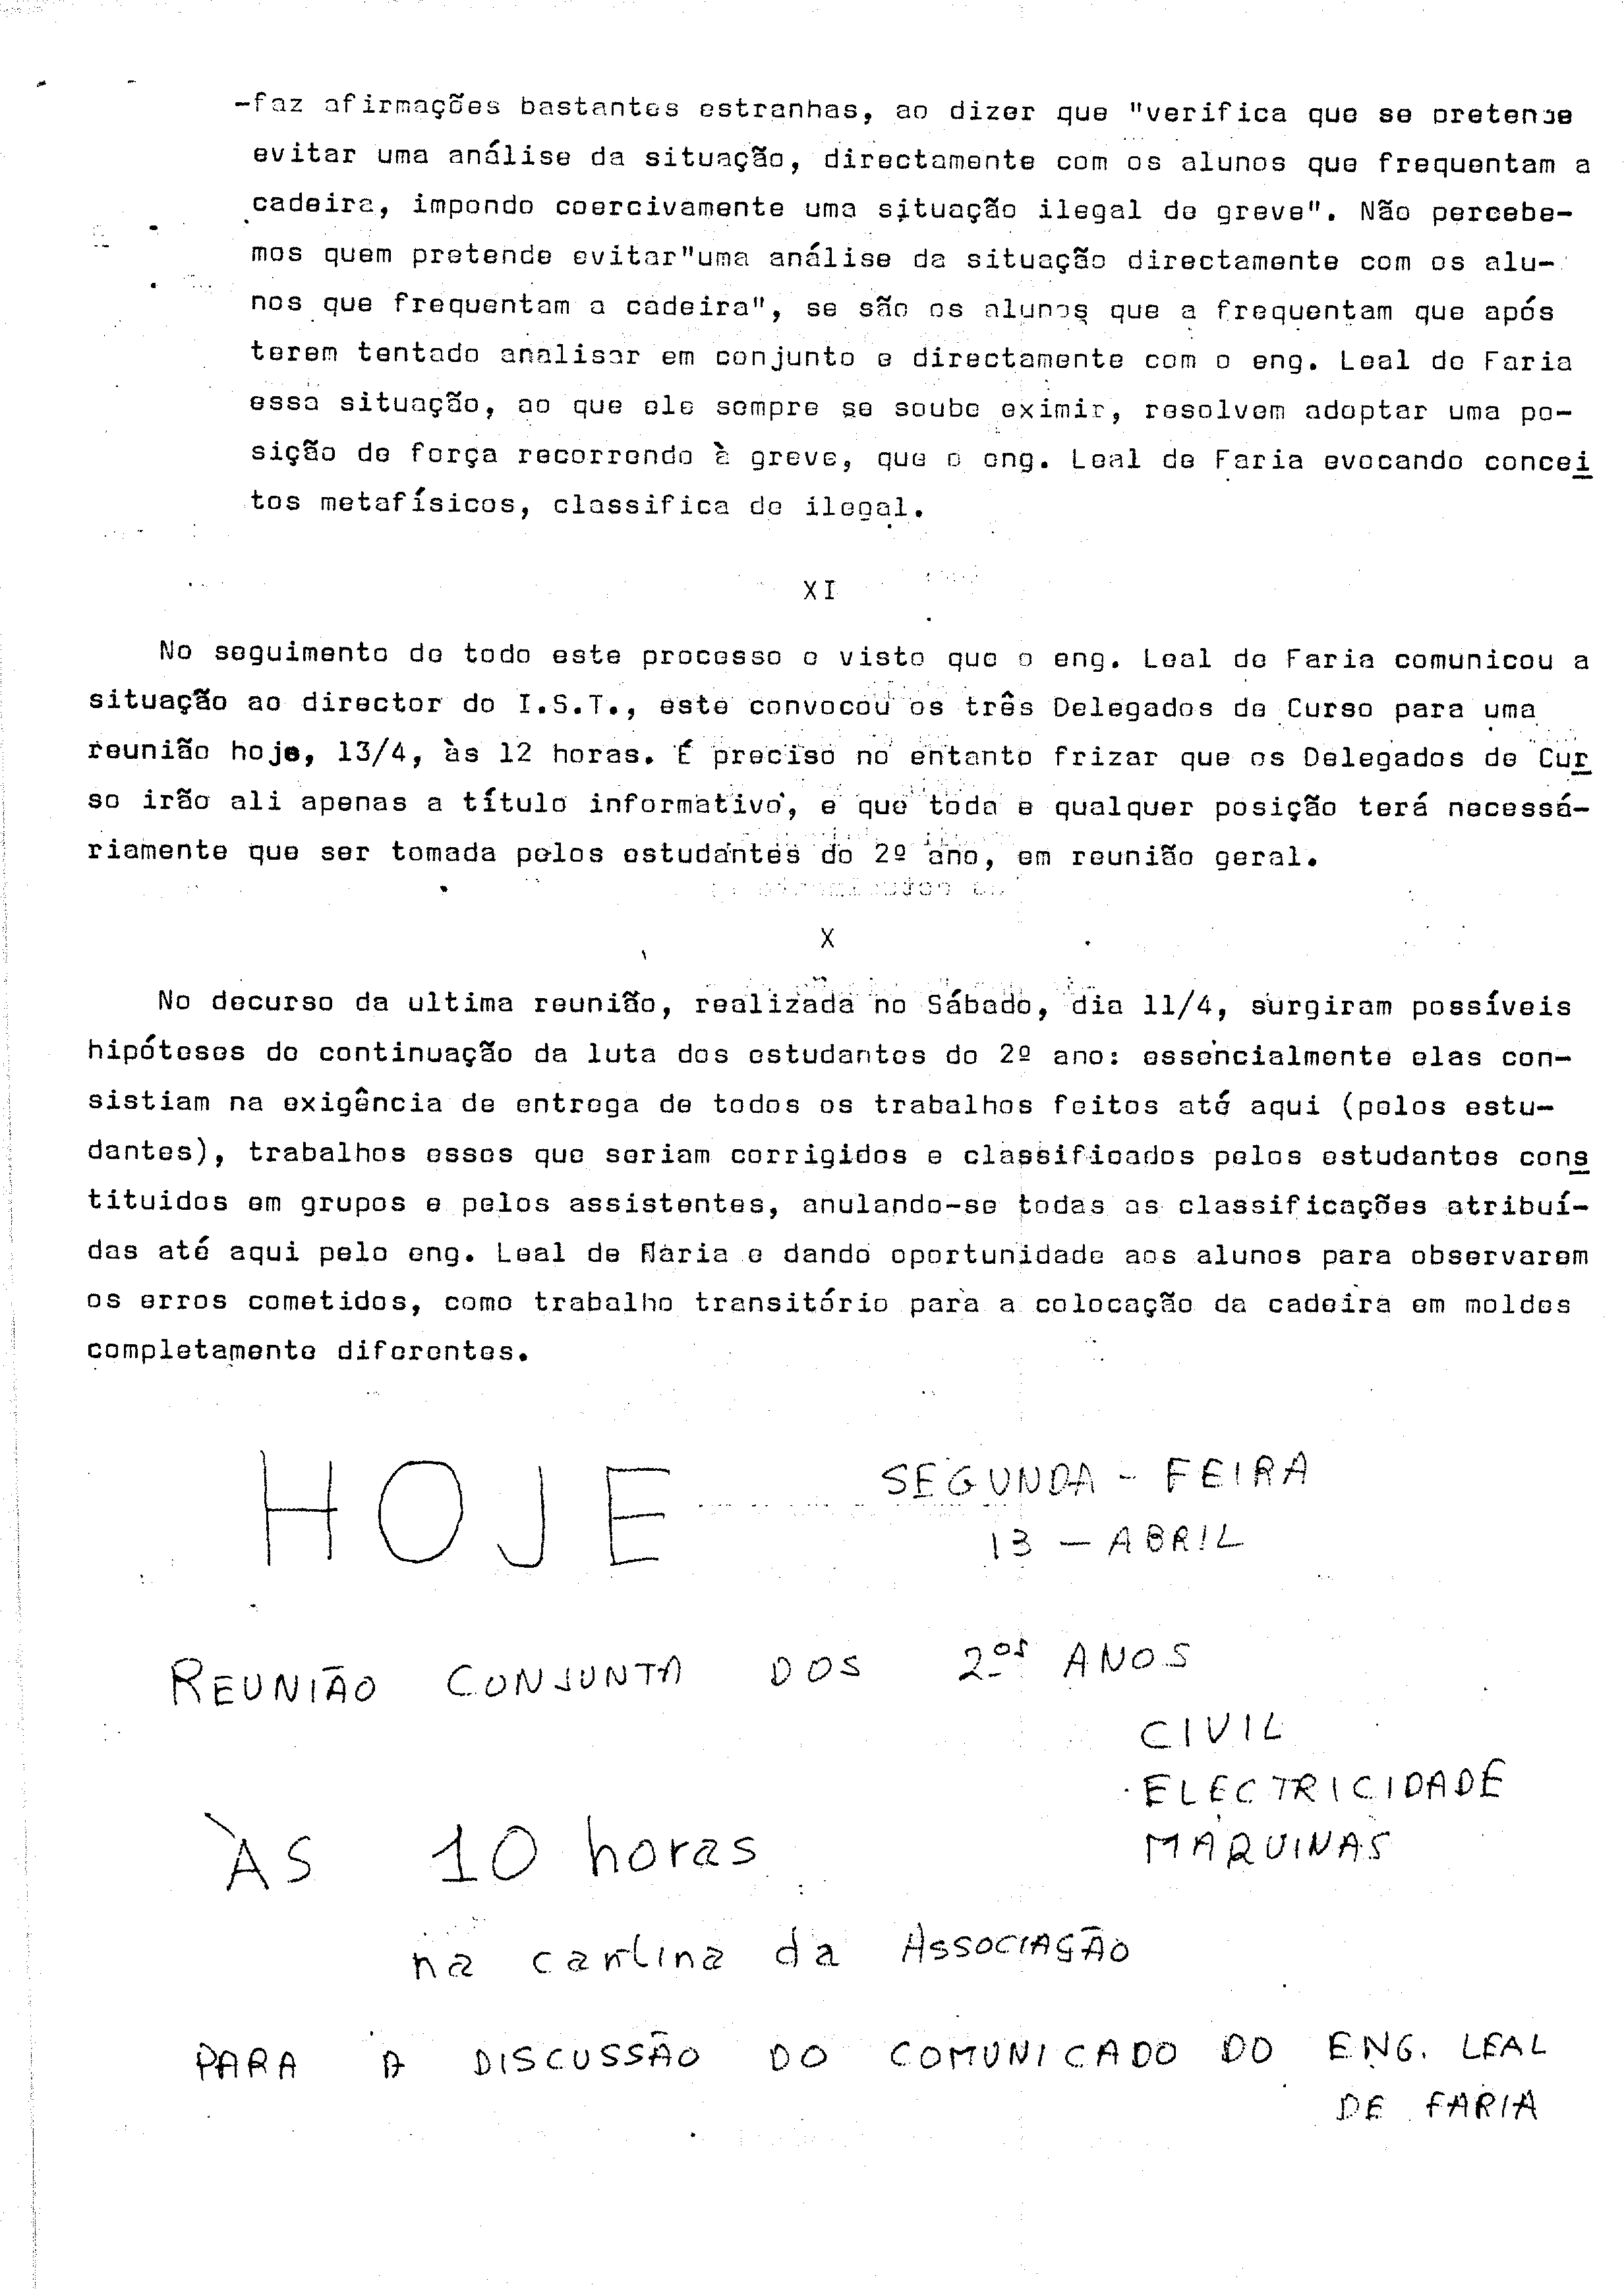 -faz afirmações bastantes estranhas, ao dizer que "verifica que se pretende
evitar uma análise da situação, directamente com os alunos que frequentam a
cadeira, impondo coercivamente uma situação ilegal de greve". Não percebe-
mos quem pretende evitar"uma análise da situação directamente com os alu-
nos que frequentam a cadeira", se são os alunos que a frequentam que após
terem tentado analisar em conjunto e directamente com o eng. Leal de Faria
essa situação, ao que ele sempre se soube eximir, resolvem adoptar uma po-
sição de força recorrendo à greve, que o eng. Leal de Faria evocando concei
tos metafísicos, classifica de ilegal.
XI
No seguimento de todo este processo e visto que o eng. Leal de Faria comunicou a
situação ao director do I.S.T., este convocou os três Delegados de Curso para uma
reunião hoje, 13/4, às 12 horas. É preciso no entanto frizar que os Delegados de Cur
so irão ali apenas a título informativo, e que toda e qualquer posição terá necessá-
riamente que ser tomada pelos estudantes do 2º ano, em reunião geral.
X
No decurso da ultima reunião, realizada no Sábado, dia 11/4, surgiram possíveis
hipóteses de continuação da luta dos estudantes do 2º ano: essencialmente elas con-
sistiam na exigência de entrega de todos os trabalhos feitos até aqui (pelos estu-
dantes), trabalhos esses que seriam corrigidos e classificados pelos estudantes cons
tituidos em grupos e pelos assistentes, anulando-se todas as classificações atribuí-
das até aqui pelo eng. Leal de Faria e dando oportunidade aos alunos para observarem
os erros cometidos, como trabalho transitório para a colocação da cadeira em moldes
completamente diferentes.
HOJE SEGUNDA-FEIRA
13 - ABRIL
REUNIÃO CONJUNTA DOS 2ºs ANOS
CIVIL
ELECTRICIDADE
MÁQUINAS
ÀS 10 horas
na cantina da ASSOCIAÇÃO
PARA A DISCUSSÃO DO COMUNICADO DO ENG. LEAL
DE FARIA